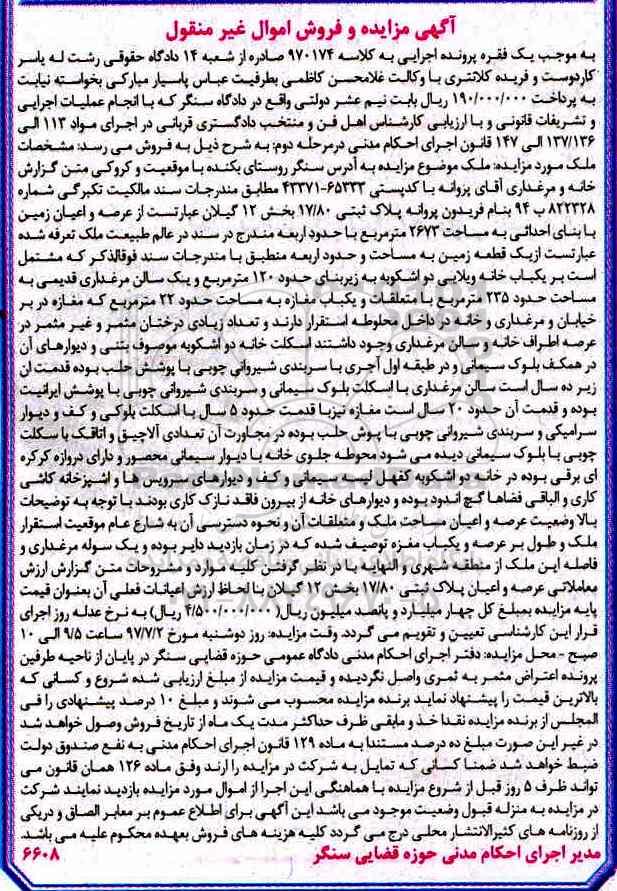 آگهی مزایده و فروش اموال غیر منقول
به موجب یک فقره پرونده اجرایی به کلاسه ۹۷۰۱۷۴ صادره از شعبه ۱۴ دادگاه حقوقی رشت له یاسر
کاردوست و فریده کلانتری با وکالت غلامحسن کاظمی بطرفیت عباس پاسیار مبارکی بخواسته نیابت
به پرداخت ۱۹۰/۰۰۰/۰۰۰ ریال بابت نیم عشر دولتی واقع در دادگاه سنگر که با انجام عملیات اجرایی
و تشریفات قانونی و با ارزیابی کارشناس اهل فن و منتخب دادگستری قربانی در اجرای مواد ۱۱۳ الی
۱۳۷/۱۳۶ الی ۱۴۷ قانون اجرای احکام مدنی درمرحله دوم: به شرح ذیل به فروش می رسد: مشخصات
ملک مورد مزایده: ملک موضوع مزایده به آدرس سنگر روستای بکنده با موقعیت و کروکی متن گزارش
خانه و مرغداری آقای پروانه با کدپستی ۶۵۳۳۳-۴۳۳۷۱ مطابق مندرجات سند مالکیت تکبرگی شماره
۸۲۲۳۲۸ ب ۹۴ بنام فریدون پروانه پلاک ثبتی ۱۷/۸۰ بخش ۱۲ گیلان عبارتست از عرصه و اعیان زمین
با بنای احداثی به مساحت ۲۶۷۳ مترمربع با حدود اربعه مندرج در سند در عالم طبیعت ملک تعرفه شده
عبارتست ازیک قطعه زمین به مساحت و حدود اربعه منطبق با مندرجات سند فوقالذکر که مشتمل
است بر یکباب خانه ویلایی دو اشکوبه به زیربنای حدود ۱۲۰ مترمربع و یک سالن مرغداری قدیمی به
مساحت حدود ۲۳۵ مترمربع با متعلقات و یکباب مغازه به مساحت حدود ۲۲ مترمربع که مغازه در بر
خیابان و مرغداری و خانه در داخل محلوطه استقرار دارند و تعداد زیادی درختان مثمر و غیر مثمر در
عرصه اطراف خانه و سالن مرغداری وجود داشتند اسکلت خانه دو اشکوبه موصوف بتنی و دیوارهای آن
در همکف بلوک سیمانی و در طبقه اول آجری با سربندی شیروانی چوبی با پوشش حلب بوده قدمت ان
زیر ده سال است سالن مرغداری با اسکلت بلوک سیمانی و سربندی شیروانی چوبی با پوشش ایرانیت
بوده و قدمت آن حدود ۲۰ سال است مغازه نیزبا قدمت حدود ۵ سال با اسکلت بلوکی و کف و دیوار
سرامیکی و سربندی شیروانی چوبی با پوش حلب بوده در مجاورت آن تعدادی آلاچیق و اتاقک با سکلت
چوبی با بلوک سیمانی دیده می شود محوطه جلوی خانه با دیوار سیمانی محصور و دارای دروازه کرکره
ای برقی بوده در خانه دو اشکوبه کفهل لیسه سیمانی و کف و دیوارهای سرویس ها و اشپزخانه کاشی
کاری و الباقی فضاها گچ اندود بوده و دیوارهای خانه از بیرون فاقد نازک کاری بودند با توجه به توضیحات
بالا وضعیت عرصه و اعیان مساحت ملک و متعلقات آن و نحوه دسترسی آن به شارع عام موقعیت استقرار
ملک و طول بر عرصه و یکباب مغزه توصیف شده که در زمان بازدید دایر بوده و یک سوله مرغداری و
فاصله این ملک از منطقه شهری و النهایه با در نظر گرفتن کلیه موارد و مشروحات متن گزارش ارزش
معاملاتی عرصه و اعیان پلاک ثبتی ۱۷/۸۰ بخش ۱۲ گیلان بنا لحاظ ارزش اعیانات فعلی آن بعنوان قیمت
پایه مزایده بمبلغ کل چهار میلیارد و پانصد میلیون ریال( ۴/۵۰۰/۰۰۰/۰۰۰ ریال) به نرخ عدله روز اجرای
قرار این کارشناسی تعیین و تقویم می گردد. وقت مزایده: روز دوشنبه مورخ ۹۷/۷/۲ ساعت ۹/۵ الی ۱۰
صبح - محل مزایده: دفتر اجرای احکام مدنی دادگاه عمومی حوزه قضایی سنگر در پایان از ناحیه طرفین
پرونده اعتراض مثمر به ثمری واصل نگردیده و قیمت مزایده از مبلغ ارزیابی شده شروع و کسانی که
بالاترین قیمت را پیشنهاد نماید برنده مزایده محسوب می شوند و مبلغ ۱۰ درصد پیشنهادی را فی
المجلس از برنده مزایده نقدا خذ و مابقی ظرف حداکثر مدت یک ماه از تاریخ فروش وصول خواهد شد
در غیر این صورت مبلغ ده درصد مستندا به ماده ۱۲۹ قانون اجرای احکام مدنی به نفع صندوق دولت
ضبط خواهد شد ضمنا کسانی که تمایل به شرکت در مزایده را ارند وفق ماده ۱۲۶ همان قانون می
تواند ظرف ۵ روز قبل از شروع مزایده با هماهنگی این اجرا از اموال مورد مزایده بازدید نمایند شرکت
در مزایده به منزله قبول وضعیت موجود می باشد این آگهی برای اطلاع عموم بر معابر الصاق و دریکی
از روزنامه های کثیرالانتشار محلی درج می گردد کلیه هزینه های فروش بعهده محکوم علیه می باشد.
مدیر اجرای احکام مدنی حوزه قضایی سنگر
۶۶۰۸